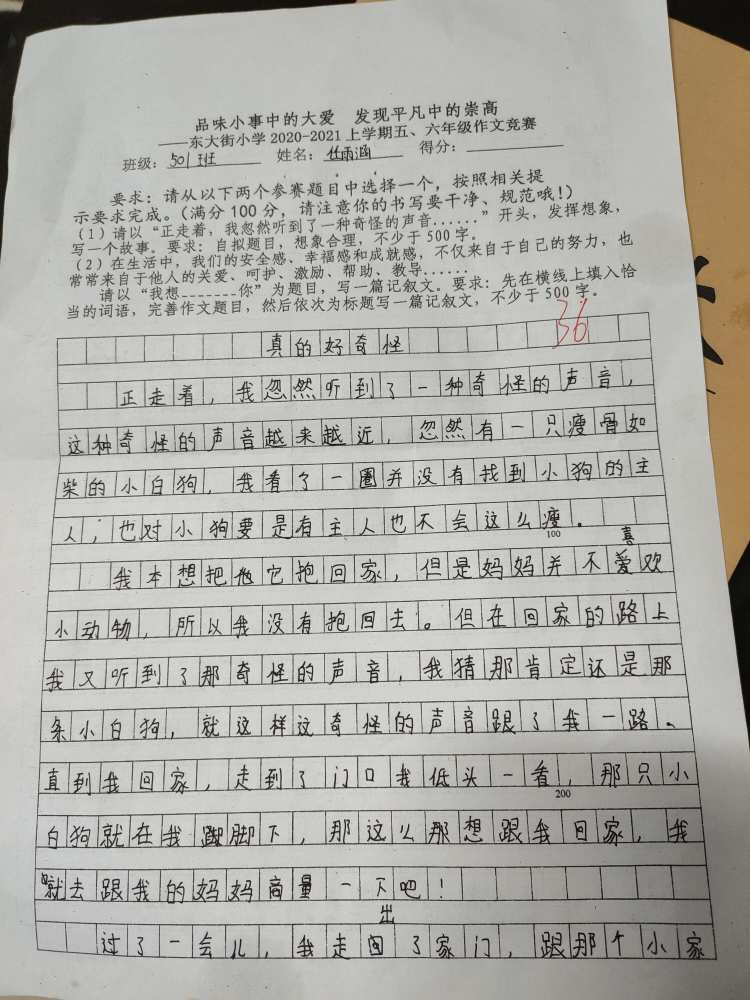 品味小事中的大爱 发现平凡中的崇高
——东大街小学2020-2021上学期五、六年级作文竞赛
班级：501班 姓名：任雨涵 得分：
要求：请从以下两个参赛题目中选择一个，按照相关提
示要求完成。（满分100分，请注意你的书写要干净、规范哦！）
（1）请以“正走着，我忽然听到了一种奇怪的声音......”开头，发挥想象，
写一个故事。要求：自拟题目，想象合理，不少于500字。
（2）在生活中，我们的安全感、幸福感和成就感，不仅来自于自己的努力，也
常常来自于他人的关爱、呵护、激励、帮助、教导......
请以“我想_______你”为题目，写一篇记叙文。要求：先在横线上填入恰
当的词语，完善作文题目，然后依次为标题写一篇记叙文，不少于500字。
36
真的好奇怪
正走着，我忽然听到了一种奇怪的声音，
这种奇怪的声音越来越近，忽然有一只瘦骨如
柴的小白狗，我看了一圈并没有找到小狗的主
人，也对小狗要是有主人也不会这么瘦。
100
喜
我本想把他它抱回家，但是妈妈并不爱欢
小动物，所以我没有抱回去。但在回家的路上
我又听到了那奇怪的声音，我猜那肯定还是那
条小白狗，就这样这奇怪的声音跟了我一路。
直到我回家，走到了门口我低头一看，那只小
200
白狗就在我脚下，那这么那想跟我回家，我
就去跟我的妈妈商量一下吧！
出
过了一会儿，我走回了家门，跟那个小家